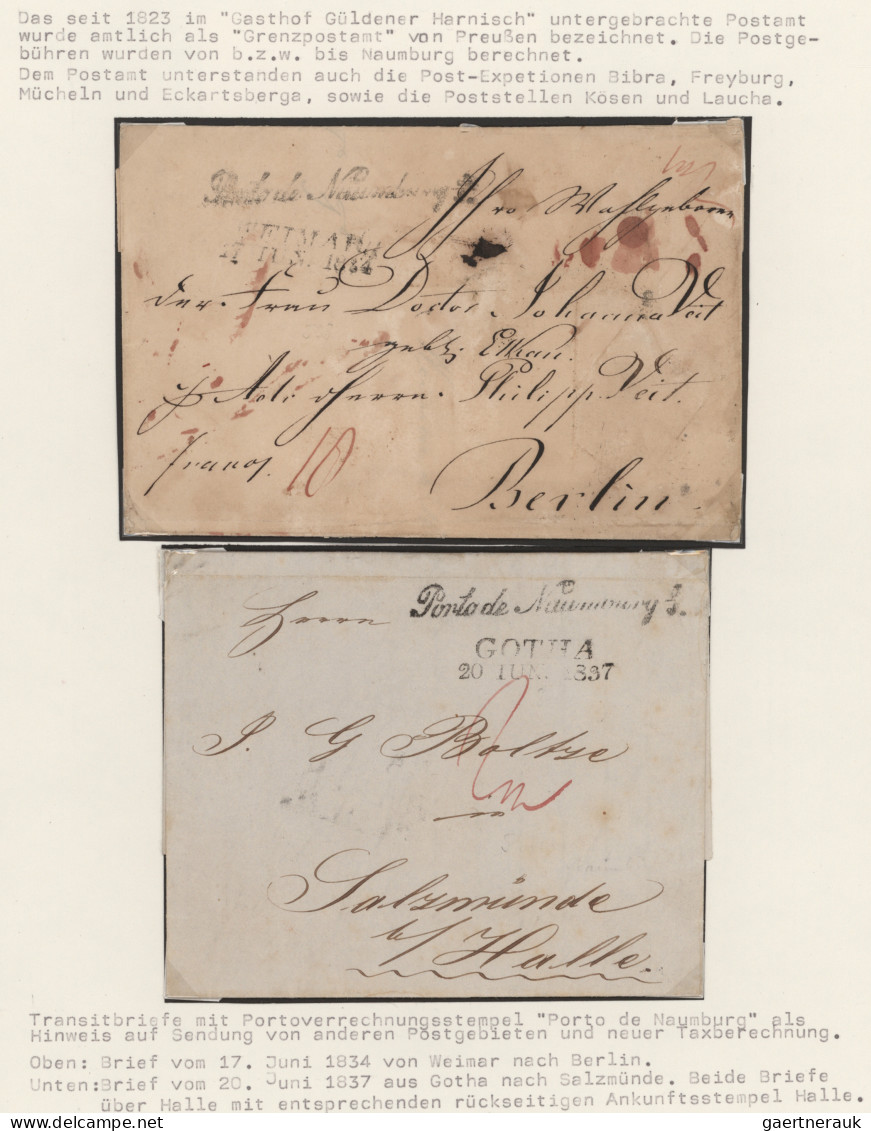 Das seit 1823 im "Gasthof Güldener Harnisch" untergebrachte Postamt
wurde amtlich als "Grenzpostamt" von Preußen bezeichnet. Die Postge-
bühren wurden von b.z.w. bis Naumburg berechnet.
Dem Postamt unterstanden auch die Post-Expetionen Bibra, Freyburg,
Mücheln und Eckartsberga, sowie die Poststellen Kösen und Laucha.
Porto de Naumburg
WEIMAR
17 IUN. 1834
Wohlgeboren
der Frau Doctor Johanna Veit
geb.
Herrn Philipp Veit.
franco 18
Berlin
Porto de Naumburg
Herrn
GOTHA
20 IUN. 1837
J. G. Boltze
in
Salzmünde
b/ Halle.
Transitbriefe mit Portoverrechnungsstempel "Porto de Naumburg" als
Hinweis auf Sendung von anderen Postgebieten und neuer Taxberechnung.
Oben: Brief vom 17. Juni 1834 von Weimar nach Berlin.
Unten:Brief vom 20. Juni 1837 aus Gotha nach Salzmünde. Beide Briefe
über Halle mit entsprechenden rückseitigen Ankunftsstempel Halle.
www.StampCircuit.com
gaertnerauk